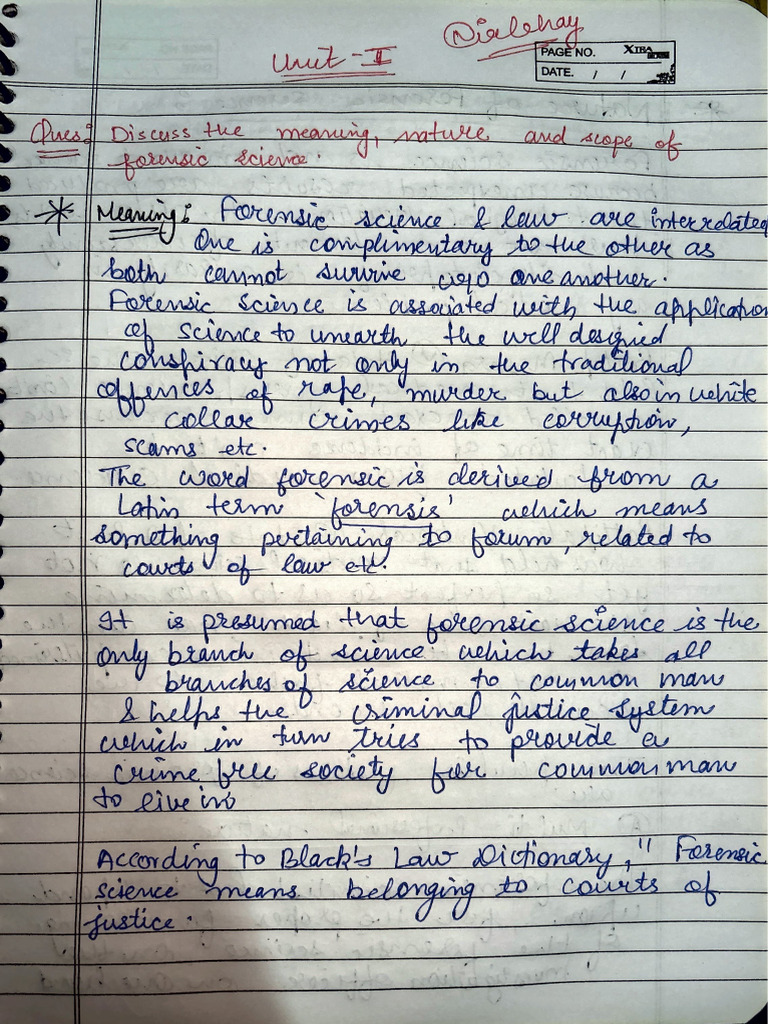 Unit - I
PAGE NO.
DATE. / /
Ques: Discuss the meaning, nature and scope of
forensic science.
* Meaning: Forensic science & law are interrelated
One is complimentary to the other as
both cannot survive w/o one another.
Forensic science is associated with the application
of science to unearth the well designed
conspiracy not only in the traditional
offences of rape, murder but also in white
collar crimes like corruption,
scams etc.
The word forensic is derived from a
Latin term 'forensis' which means
something pertaining to forum, related to
courts of law etc.
It is presumed that forensic science is the
only branch of science which takes all
branches of science to common man
& helps the criminal justice system
which in turn tries to provide a
crime free society for common man
to live in
According to Black's Law Dictionary, " Forensic
science means belonging to courts of
justice.